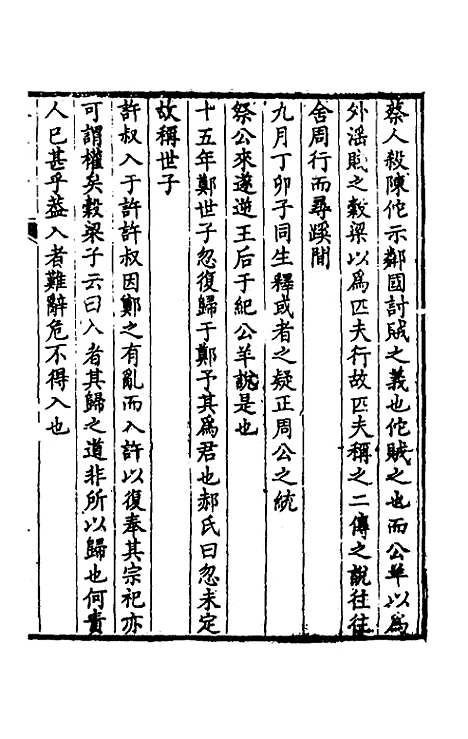 蔡人殺陳佗示鄰國討賊之義也佗賊之也而公羊以為
外淫賊之穀梁以為匹夫行故匹夫稱之二傳之說往往
舍周行而尋蹊閒
九月丁卯子同生釋或者之疑正周公之統
祭公來遂逆王后于紀公羊說是也
十五年鄭世子忽復歸于鄭予其為君也郝氏曰忽未定
故稱世子
許叔入于許許叔因鄭之有亂而入許以復奉其宗祀亦
可謂權矣穀梁子云曰入者其歸之道非所以歸也何責
人已甚乎葢入者難辭危不得入也